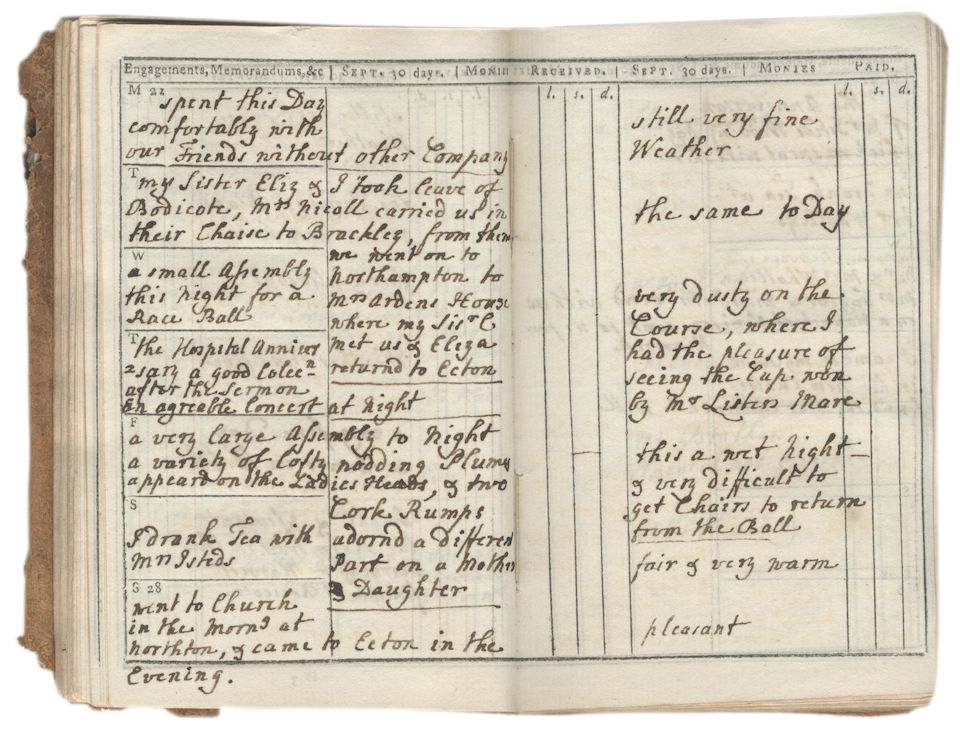 Engagements, Memorandums, &c | SEPT. 30 days. | MONIE RECEIVED. | SEPT. 30 days. | MONIES PAID.
l. s. d. l. s. d.
M 22
spent this Day
comfortably with
our Friends without other Company
T
my Sister Eliz & I took leave of
Bodicote, Mrs Nicoll carried us in
their Chaise to Brackley, from them
we went on to
Northampton to
Mrs Ardens House
where my Sisr C
met us & Eliza
returnd to Ecton
W
a small Assembly
this Night for a
Race Ball
T
the Hospital Anniver
=sary a good Colecn
after the Sermon
an agreable Concert at Night
F
a very large Assembly to Night
a variety of Lofty nodding Plumes
appeard on the Ladies Heads, & two
Cork Rumps
adornd a different
Part on a Mother
& Daughter
S
I drank Tea with
Mrs Isteds
S 28
went to Church
in the Morng at
Northton, & came to Ecton in the
Evening.
still very fine
Weather
the same to Day
very dusty on the
Course, where I
had the pleasure of
seeing the Cup won
by Mr Listers Mare
this a wet Night
& very difficult to
get Chairs to return
from the Ball
fair & very warm
pleasant